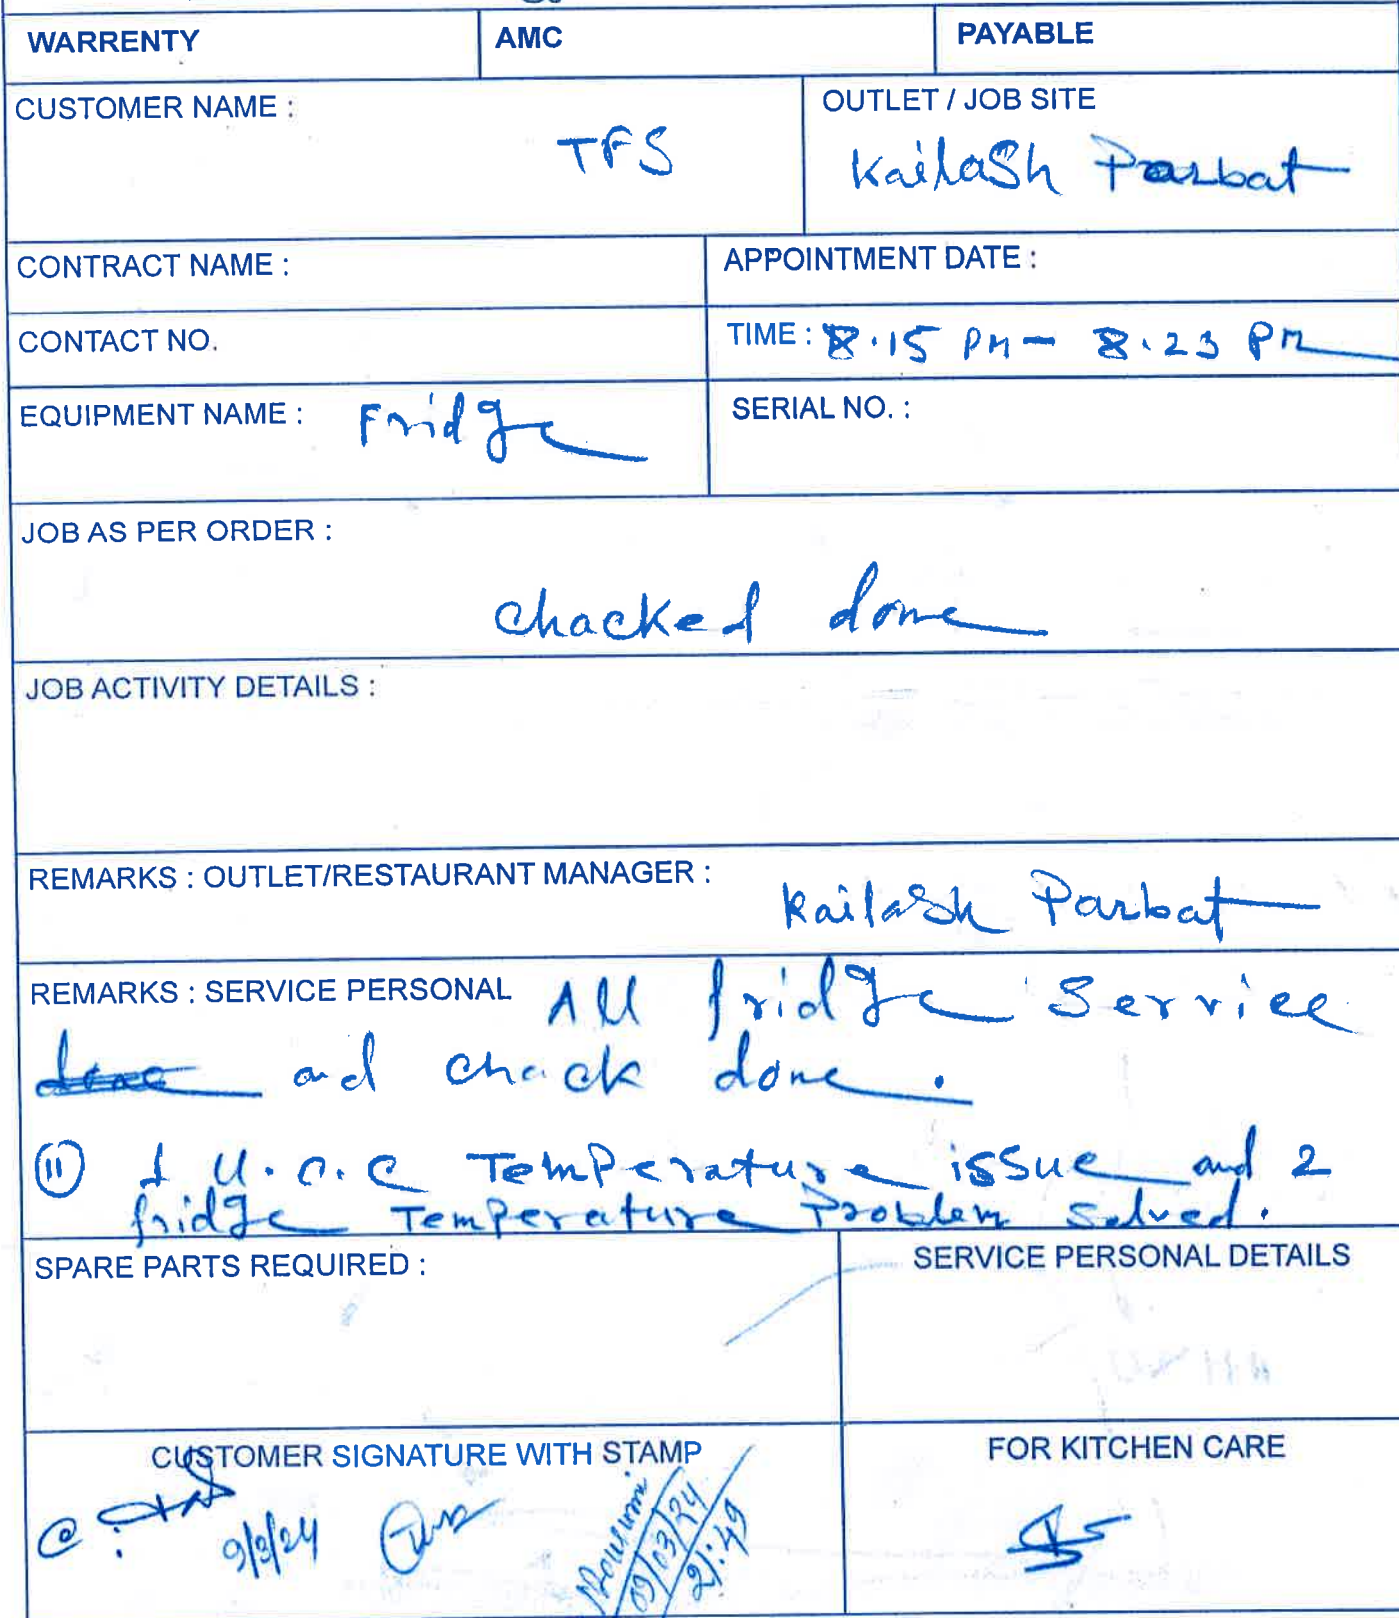 WARRENTY AMC PAYABLE
CUSTOMER NAME : TFS
OUTLET / JOB SITE
Kailash Parbat
CONTRACT NAME :
APPOINTMENT DATE :
CONTACT NO.
TIME : 8.15 PM - 8.23 PM
EQUIPMENT NAME : Fridge
SERIAL NO. :
JOB AS PER ORDER :
chacked done
JOB ACTIVITY DETAILS :
REMARKS : OUTLET/RESTAURANT MANAGER :
Kailash Parbat
REMARKS : SERVICE PERSONAL All fridge Service
done and chack done.
(11) 1 U.C.C Temperature issue and 2
fridge Temperature Problem Solved.
SPARE PARTS REQUIRED :
SERVICE PERSONAL DETAILS
CUSTOMER SIGNATURE WITH STAMP
9/3/24
Mousumi
09/03/24
21:49
FOR KITCHEN CARE